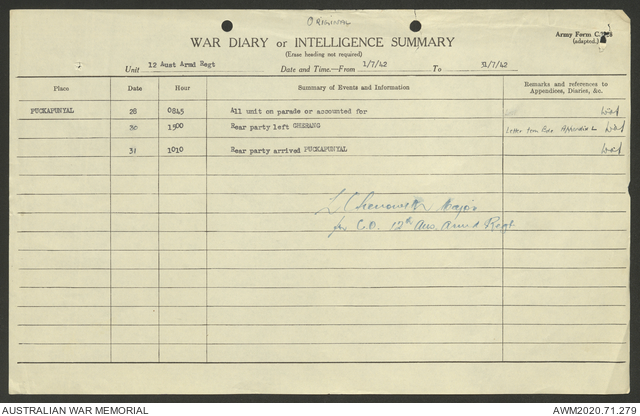 ORIGINAL
WAR DIARY or INTELLIGENCE SUMMARY
(Erase heading not required)
Army Form C.
(adapted.)
Unit 12 Aust Armd Regt Date and Time.—From 1/7/42 To 31/7/42
Place Date Hour Summary of Events and Information Remarks and references to Appendices, Diaries, &c.
PUCKAPUNYAL 28 0845 All unit on parade or accounted for
30 1500 Rear party left GHERANG Letter from Bde Appendix L
31 1010 Rear party arrived PUCKAPUNYAL
L Chenoweth Major
for C.O. 12th Aus. Armd Regt
AUSTRALIAN WAR MEMORIAL AWM2020.71.279